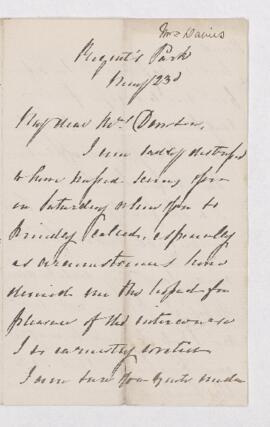 Mrs Davies
Regent's Park
May 23d
My dear Mrs
I am sadly distressed
to have missed seeing you
on Saturday when you so
kindly called, especially
as circumstances have
denied me the hoped for
pleasure of the intercourse
I so earnestly
I am sure you quite